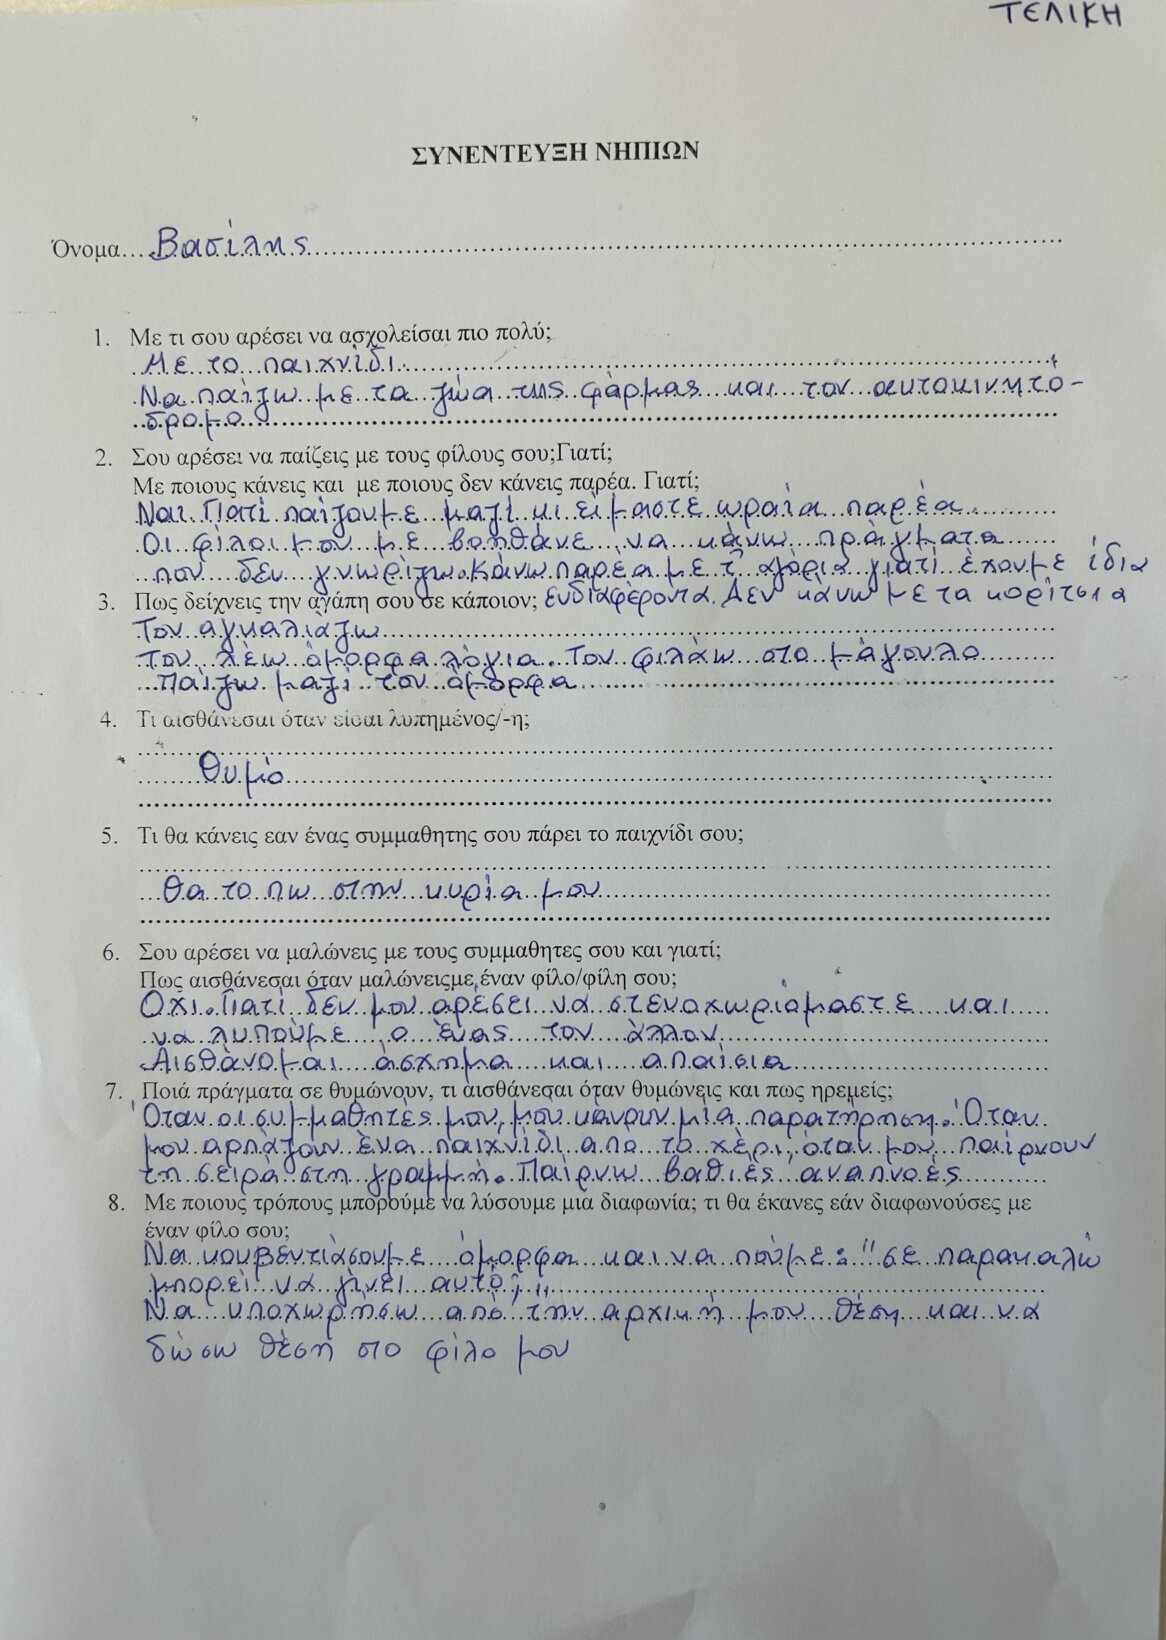 ΤΕΛΙΚΗ
ΣΥΝΕΝΤΕΥΞΗ ΝΗΠΙΩΝ
Όνομα...Βασίλης
1. Με τι σου αρέσει να ασχολείσαι πιο πολύ;
Με το παιχνίδι
Να παίζω με τα ζώα της φάρμας και τον αυτοκινητό-
δρομο
2. Σου αρέσει να παίζεις με τους φίλους σου;Γιατί;
Με ποιους κάνεις και με ποιους δεν κάνεις παρέα. Γιατί;
Ναι. Γιατί παίζουμε μαζί κι είμαστε ωραία παρέα.
Οι φίλοι μου με βοηθάνε να κάνω πράγματα
που δεν γνωρίζω. Κάνω παρέα με τ' αγόρια γιατί έχουμε ίδια
3. Πως δείχνεις την αγάπη σου σε κάποιον; ενδιαφέροντα. Δεν κάνω με τα κορίτσια
Τον αγκαλιάζω
Του λέω όμορφα λόγια. Τον φιλάω στο μάγουλο
Παίζω μαζί του όμορφα
4. Τι αισθάνεσαι όταν είσαι λυπημένος/-η;
Θυμό
5. Τι θα κάνεις εαν ένας συμμαθητης σου πάρει το παιχνίδι σου;
Θα το πω στην κυρία μου
6. Σου αρέσει να μαλώνεις με τους συμμαθητες σου και γιατί;
Πως αισθάνεσαι όταν μαλώνειςμε έναν φίλο/φίλη σου;
Όχι. Γιατί δεν μου αρέσει να στεναχωριόμαστε και
να λυπούμε ο ένας τον άλλον
Αισθάνομαι άσχημα και απαίσια
7. Ποιά πράγματα σε θυμώνουν, τι αισθάνεσαι όταν θυμώνεις και πως ηρεμείς;
Όταν οι συμμαθητές μου, μου κάνουν μία παρατήρηση. Όταν
μου αρπάζουν ένα παιχνίδι απο το χέρι, όταν μου παίρνουν
τη σειρά στη γραμμή. Παίρνω βαθιές αναπνοές
8. Με ποιους τρόπους μπορούμε να λύσουμε μια διαφωνία; τι θα έκανες εάν διαφωνούσες με
έναν φίλο σου;
Να κουβεντιάσουμε όμορφα και να πούμε: "σε παρακαλώ
μπορεί να γίνει αυτό;"
Να υποχωρήσω από την αρχική μου θέση και να
δώσω θέση στο φίλο μου